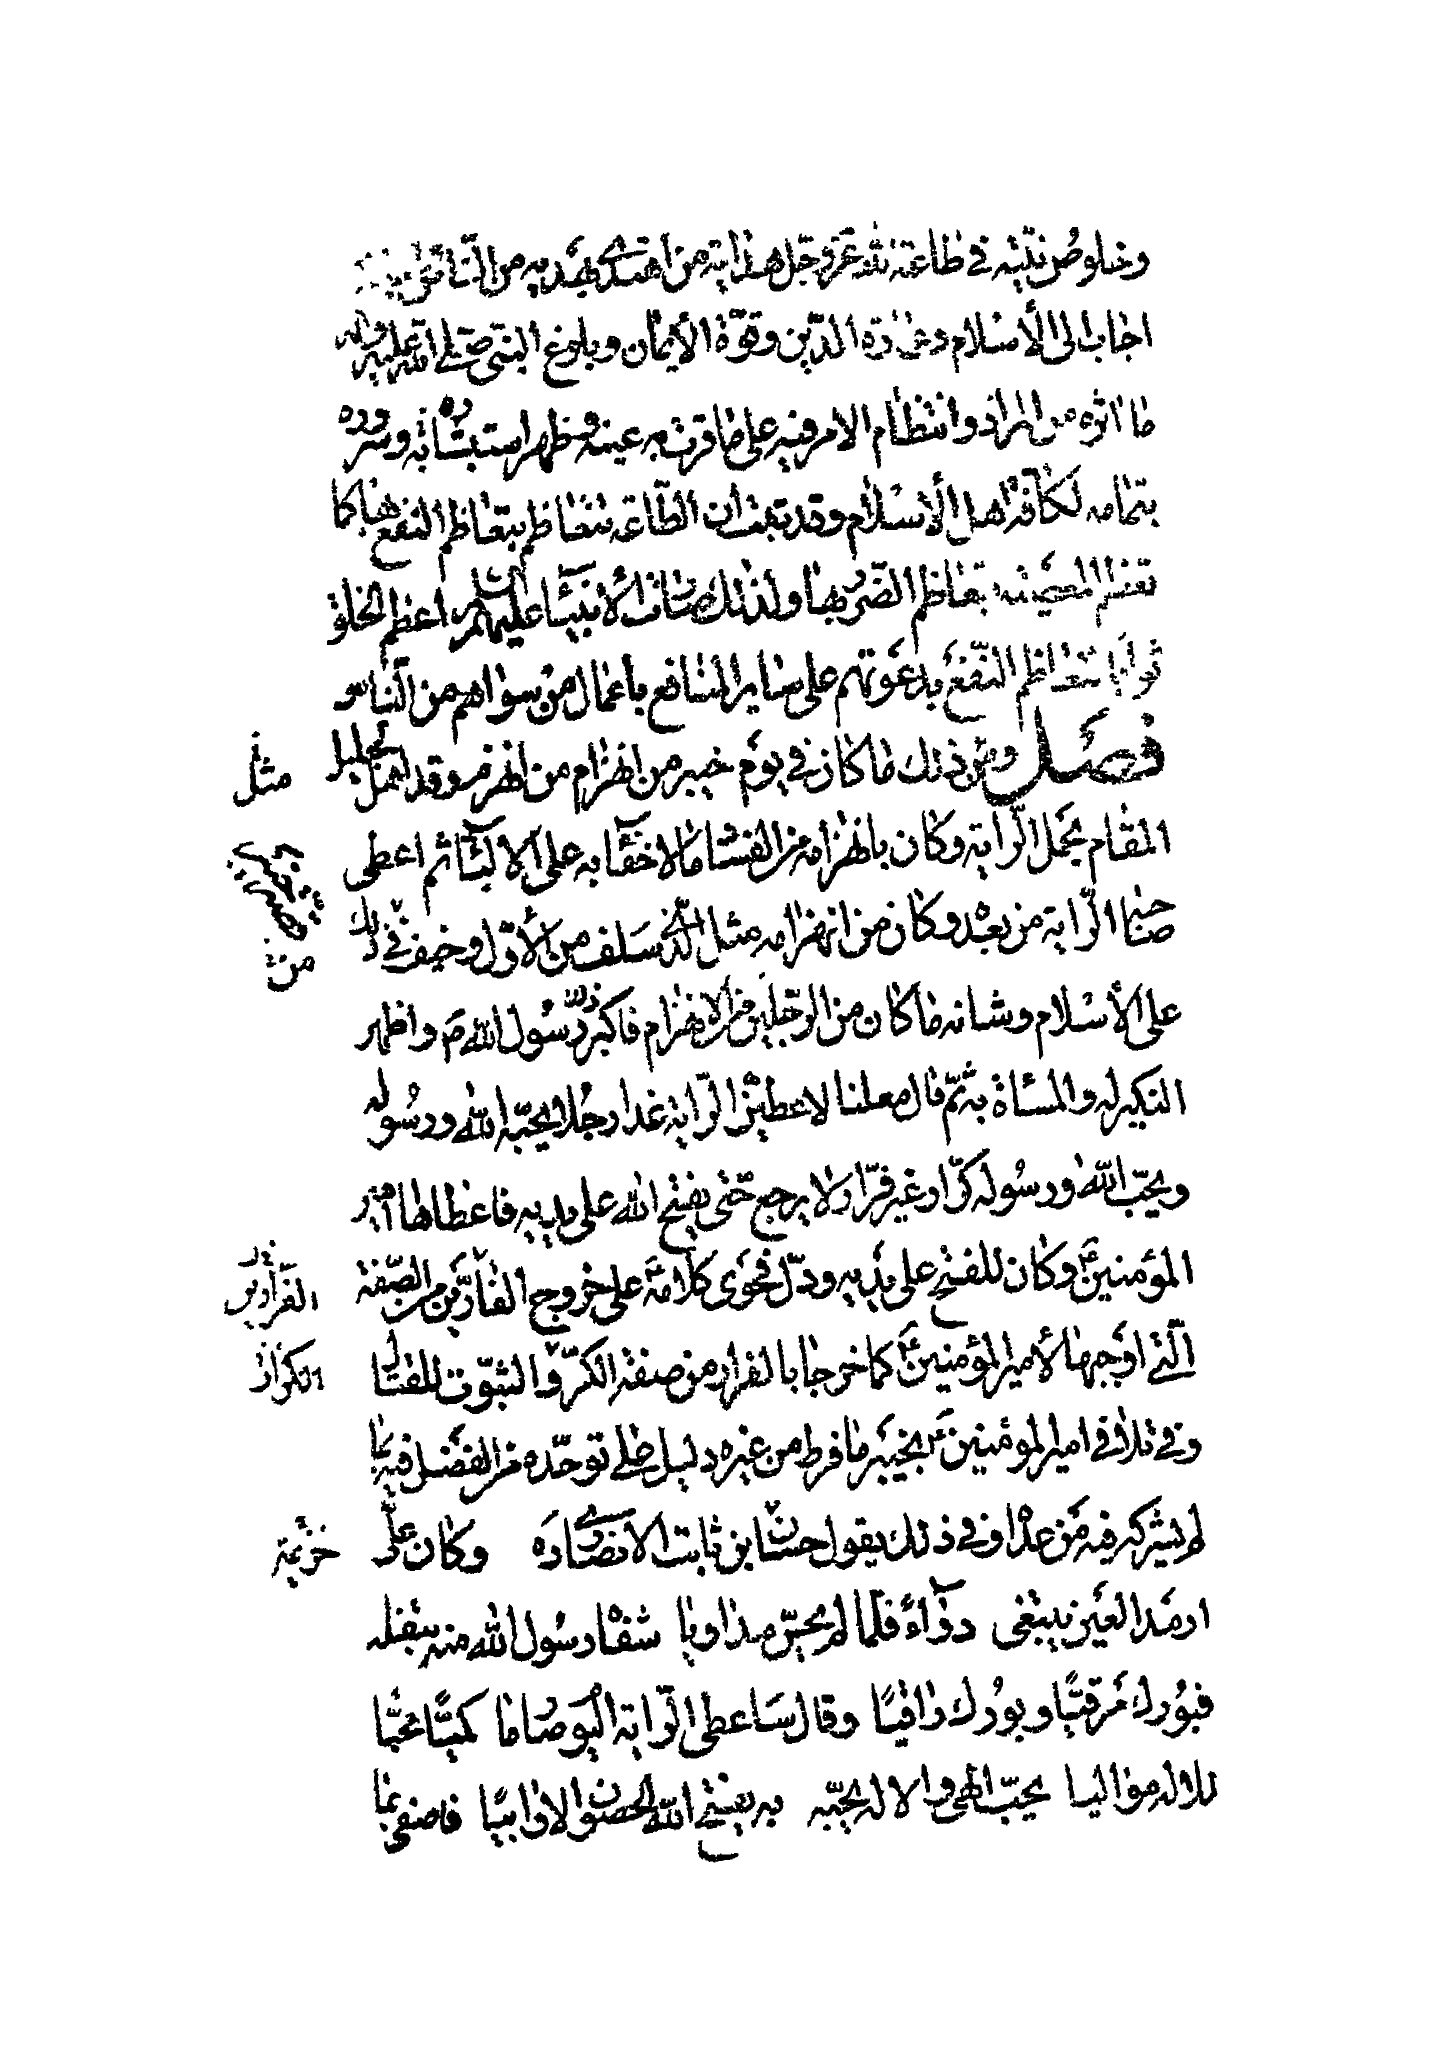 وخلوص نيّته في طاعة الله عزّ وجلّ هداية من اهتدى بهديه من النّاس
اجاب الى الأسلام وعمارة الدّين وقوّة الأيمان وبلوغ النبيّ صلّى الله عليه واله
ما اثره من المراد وانتظام الامر فيه على ما قرت به عينه وظهر استبشاره به وسروره
بتمامه لكافّة اهل الأسلام وقد ثبت ان الطّاعة تتعاظم بتعاظم النفع بها كما
تعظم المعصية بتعاظم الضّرر بها ولذلك صارت الأنبياء عليهم السلام اعظم الخلق
ثوابا لتعاظم النّفع بدعوتهم على ساير المنافع باعمال من سواهم من النّاس
فصل ومن ذلك ما كان في يوم خيبر من انهزام من انهزم وقد اهل لجليل
مثل
المقام بحمل الرّاية وكان بانهزامه من الفساد ما لا خفاء به على الالبّاء ثم اعطى
صاحبه الرّاية من بعده وكان من انهزامه مثل الّذي سلف من الأوّل وخيف في ذلك
من
على الأسلام وشانه ما كان من الرّجلين من الانهزام فاكبر ذلك رسول الله ص واظهر
النكير له والمساءة به ثمّ قال معلنا لاعطينّ الرّاية غدا رجلا يحبّه الله ورسوله
ويحبّ الله ورسوله كرّار غير فرّار لا يرجع حتّى يفتح الله على يديه فاعطاها امير
المؤمنين ع وكان للفتح على يديه ودلّ فحوى كلامه ع على خروج الفارّين من الصّفة
الفرّارين
الّتي اوجبها لأمير المؤمنين ع كما خرجا بالفرار من صفة الكرّ والثبوت للقتال
الكرار
وفي تلافي امير المؤمنين ع بخيبر ما فرط من غيره دليل على توحّده من الفضل فيه بما
لم يشركه فيه من عداه وفي ذلك يقول حسان بن ثابت الانصاري ره وكان عليّ
خزيمة
ارمد العين يبتغي دواء فلمّا لم يحسّ مداويا شفاه رسول الله منه بتفلة
فبورك مرقيّا وبورك راقيًا وقال ساعطى الرّاية اليوم صارما كميّا محبّا
للاله مواليا يحبّ الهي والاله يحبّه به يفتح الله الحصون الاوابيًا فاصفى بها